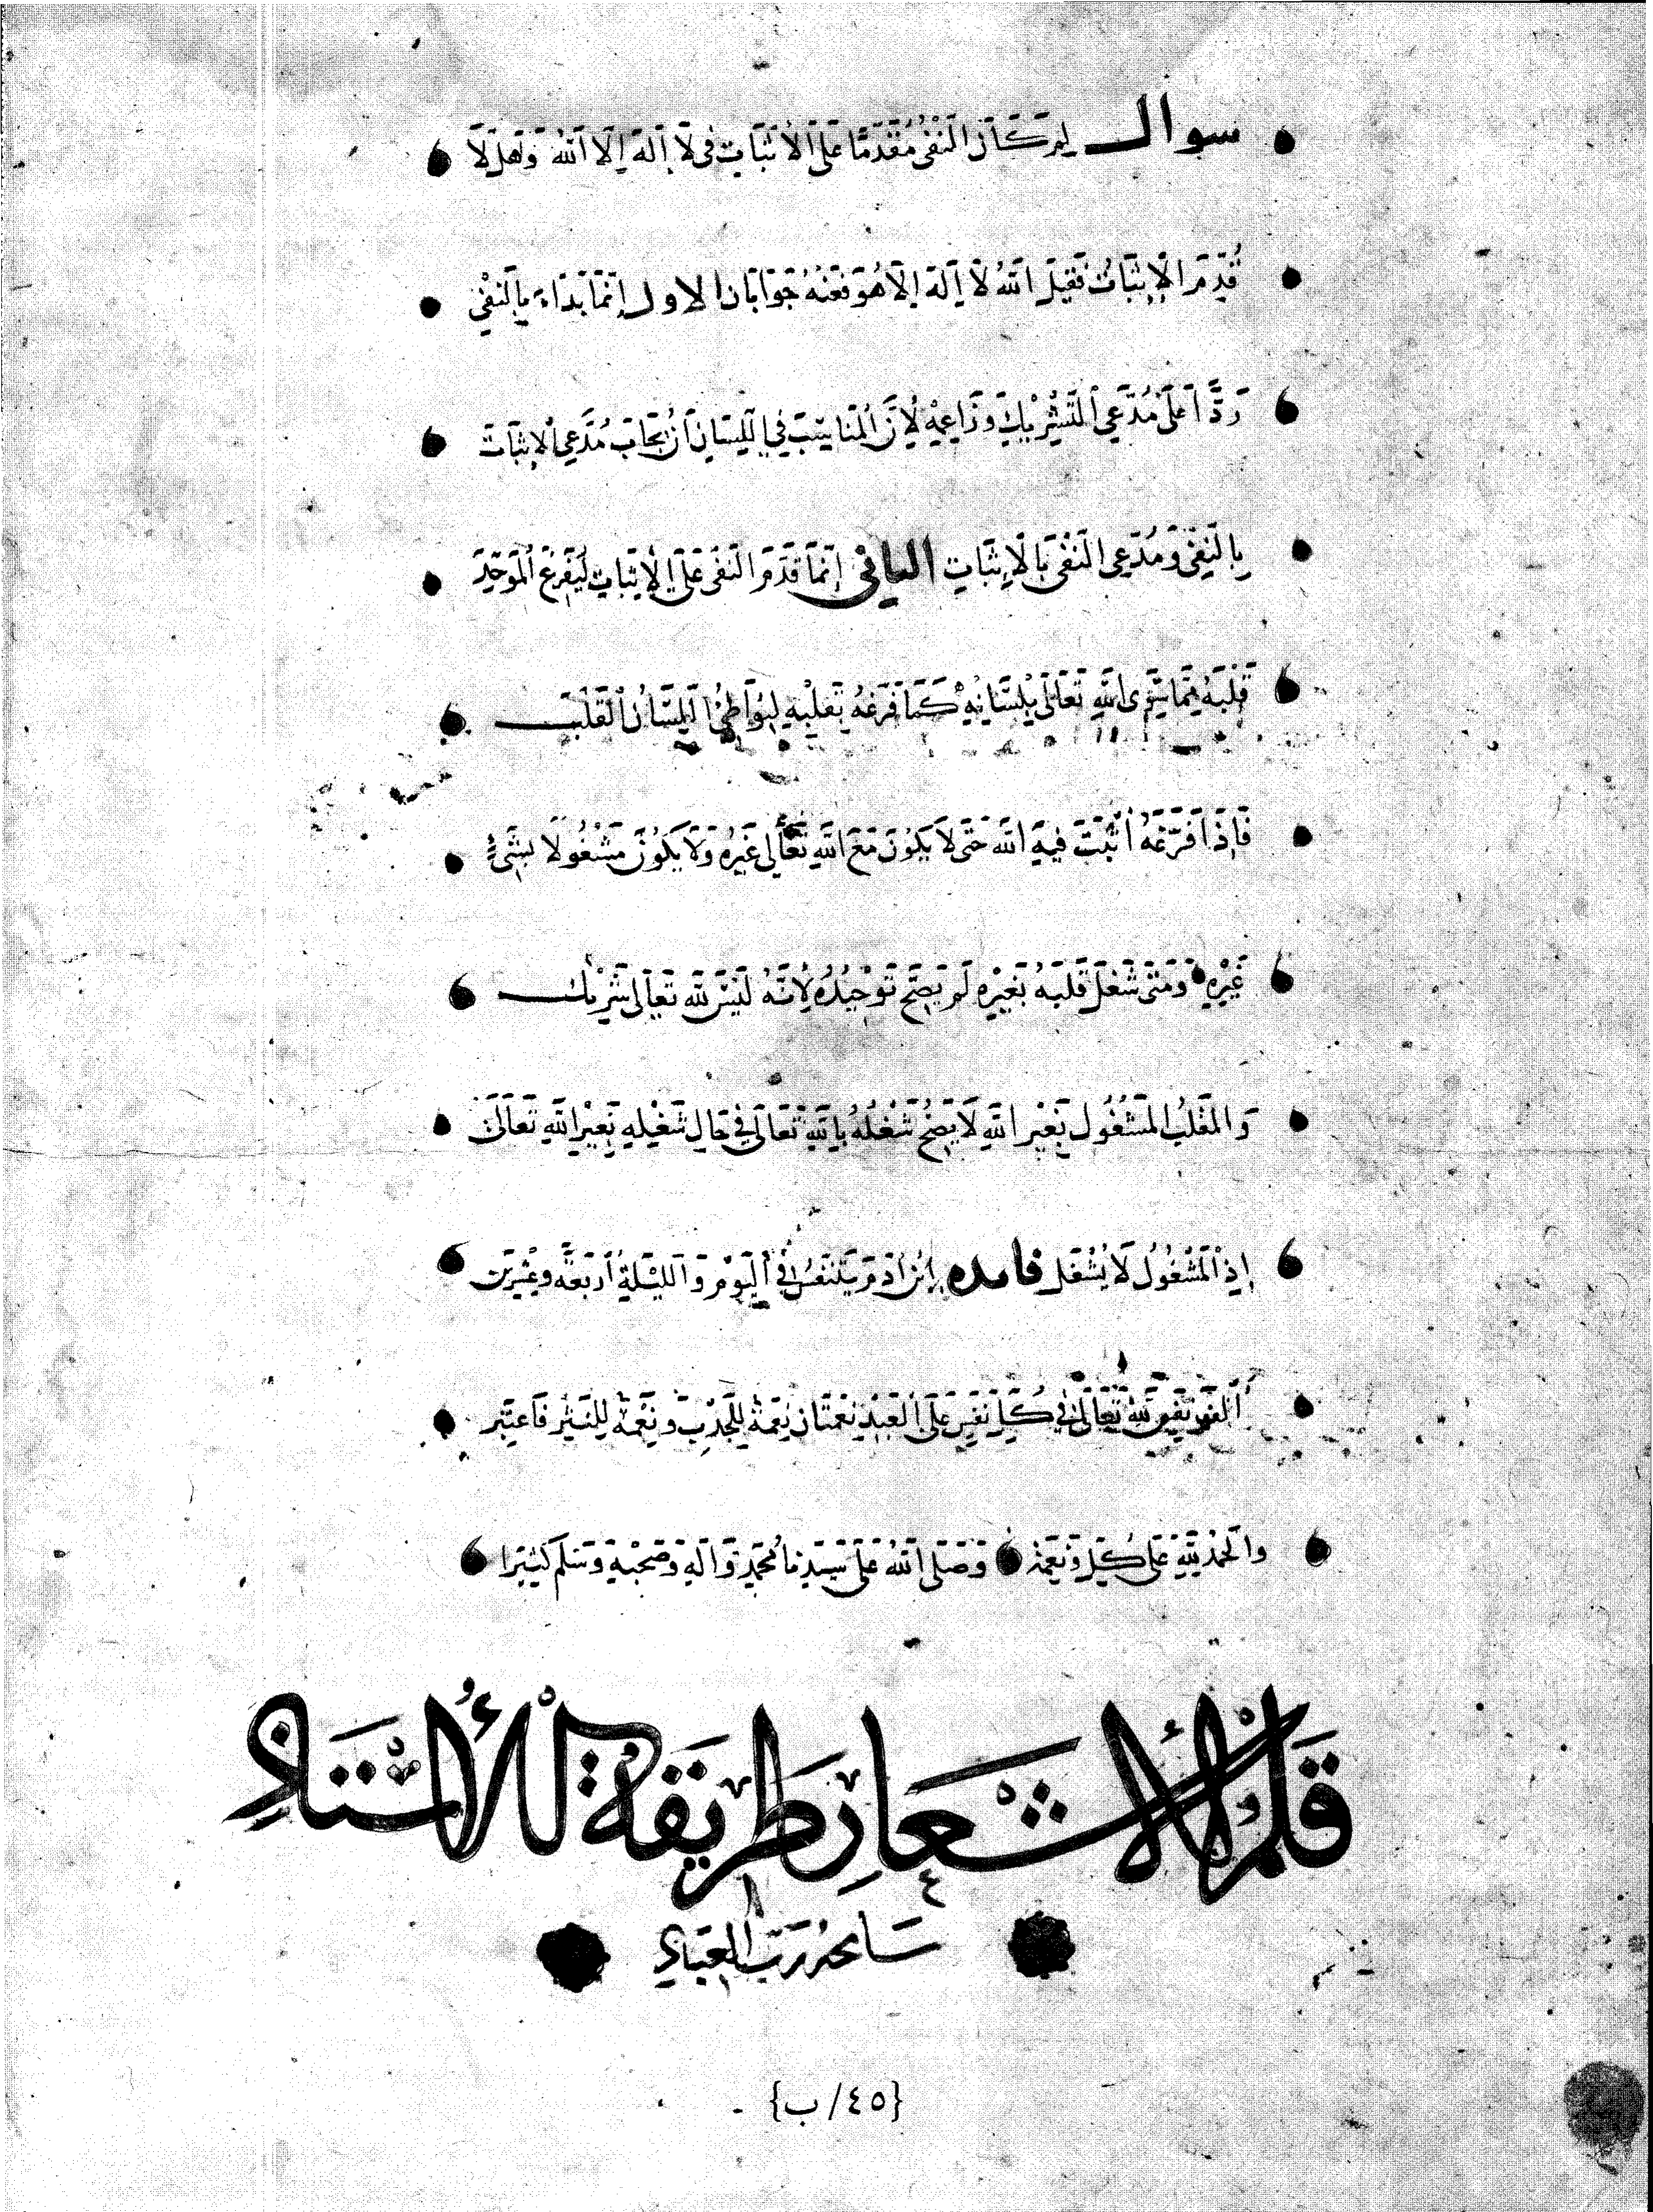 سوال لِمَ كَانَ النَفْى مُقَدَّمًا عَلى الاثبَات فى لَا إلَهَ إِلَّا اللهُ وَهَل لَّا
قُدِّمَ الْإِثبَاتُ فَقِيلَ اللهُ لَا إِلَهَ إِلَّا هُوَ فَعَنْهُ جَوَابَان الاول إِنَّمَا بَدَاء بِالنَفْىِ
رَدًّا عَلَى مُدَّعِى التَّشْرِيكِ وَزَاعِمِهِ لِأَنَّ الْمُنَاسِبَ فِى اللِّسَانِ أَنْ يُجَابَ مُدَّعِى الْإِثبَات
بِالنَفىِ وَمُدَّعِى النَفْى بِالْإِثبَاتِ الثانى إِنَّمَا قَدَّمَ النَفْىَ عَلَى الْإِثبَاتِ لِيُفَرِّغَ الْمُوَحِّدُ
قَلْبَهُ مِمَّا سِوَى اللهِ تَعَالَى بِلِسَانِهِ كَمَا فَرَّغَهُ بِقَلْبِهِ لِيُوَاطِئَ اللِّسَانُ الْقَلْبَ
فَإِذَا فَرَّغَهُ أَثْبَتَ فِيهِ اللهَ حَتَّى لَا يَكُونَ مَعَ اللهِ تَعَالَى غَيْرُهُ وَلَا يَكُونَ مَشْغُولًا بِشَىْءٍ
غَيْرِهِ وَمَتَى شَغَلَ قَلْبَهُ بِغَيْرِهِ لَمْ يَصِحَّ تَوْحِيدُهُ لِأَنَّهُ لَيْسَ للهِ تَعَالَى شَرِيك
وَالْقَلْبُ الْمَشْغُول بِغَيْرِ اللهِ لَا يَصِحُّ شَغْلُهُ بِاللهِ تَعَالَى فِى حَالِ شَغْلِهِ بِغَيْرِ اللهِ تَعَالَى
إِذِ الْمَشْغُولُ لَا يُشْغَل فايده ابْن اٰدَمَ يَتَنَفَّسُ فِى الْيَوْمِ وَاللَّيْلَةِ أَرْبَعَة وَعِشْرِينَ
أَلْفَ نَفَسٍ للهِ تَعَالَى فِى كُلِّ نَفَسٍ عَلَى الْعَبْدِ نِعْمَتَانِ نِعْمَةٌ لِلْجَذْبِ وَنِعْمَةٌ لِلنَشْرِ فَاعْتَبِر
وَالْحَمْدُ لِلَّهِ عَلَى كُلِّ نِعَمِهِ وَصَلَّى اللهُ عَلَى سَيِّدِنَا مُحَمَّدٍ وَآلِهِ وَصَحْبِهِ وَسَلَّمَ كَثِيرًا
قَلَمُ الْأَشْعَارِ طَرِيقَةُ الْأُسْتَاذِ
سَامَحَهُ رَبُّ الْعِبَادِ
{٤٥/ب}